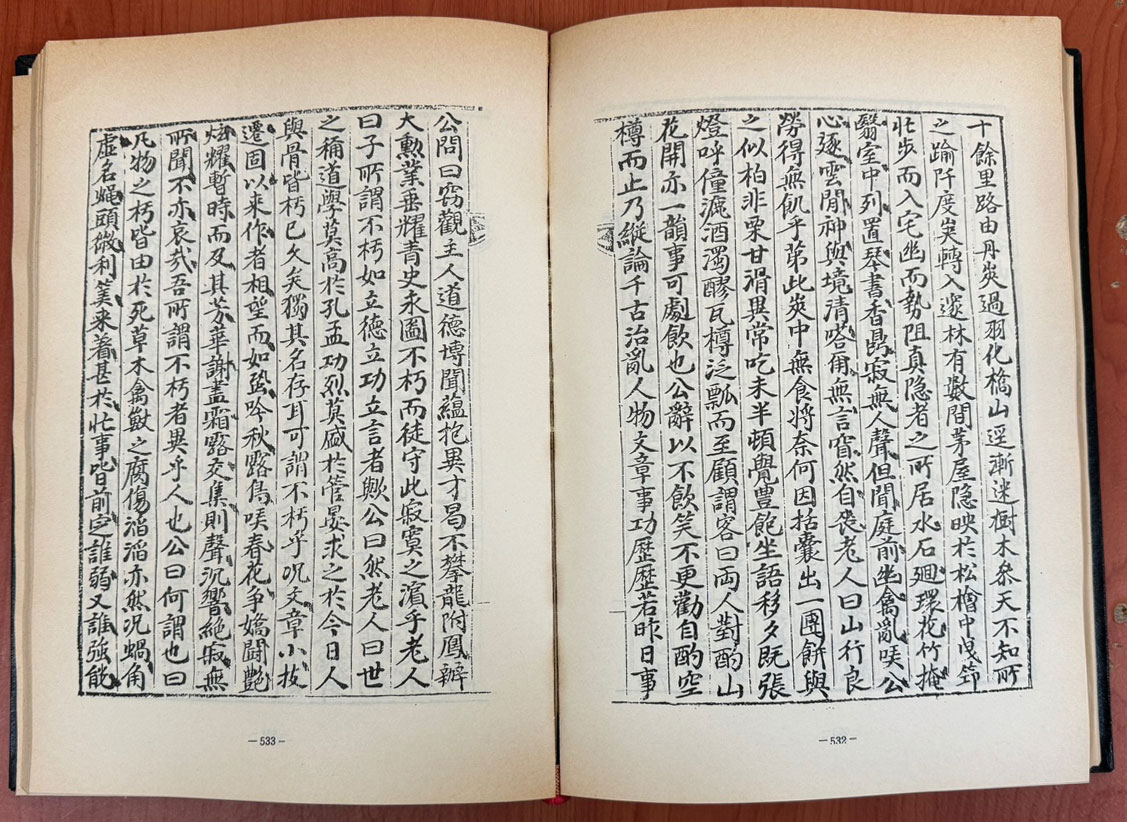 十餘里路由丹過羽化橋山逕漸迷樹木參天不知所
之踰阡度轉入邃林有數間茅屋隐映於松檜中曳筇
步而入宅幽而勢阻真隐者之所居水石廻環花竹掩
翳室中列置琴書香鼎寂無人聲但聞庭前幽禽亂咲公
心逐雲閒神與境清嗒無言窅然自喪老人曰山行良
勞得無飢乎第此中無食將奈何因括囊出一團餅與
之似柏非栗甘滑異常吃未半頓覺豊飽坐語移夕既張
燈呼僮漉酒濁醪瓦樽泛瓢而至顧謂客曰両人對酌山
花開亦一韻事可劇飲也公辭以不飲笑不更勸自酌空
樽而止乃縱論千古治亂人物文章事功歷歷若昨日事
－532－
公問曰窃觀主人道德博聞蘊抱異才曷不攀龍附鳳辦
大勳業垂耀青史永圖不朽而徒守此寂寞之濱乎老人
曰子所謂不朽如立德立功立言者歟公曰然老人曰世
之稱道學莫高於孔孟功烈莫盛於管晏求之於今日人
與骨皆朽已久矣獨其名存耳可謂不朽乎况文章小技
遷固以来作者相望而如蛩吟秋露鳥咲春花争嬌鬪艶
炫耀暫時而及其芳華謝盡霜露交集則聲沉響絶寂無
所聞不亦哀㢤吾所謂不朽者異乎人也公曰何謂也曰
凡物之朽皆由於死草木禽獸之腐傷滔滔亦然况蝸角
虛名蝇頭微利筭来着甚於忙事皆前㝎誰弱又誰強
－533－